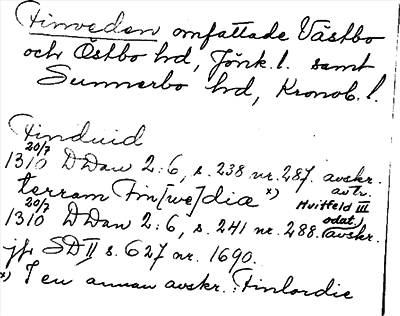 Finveden omfattade Västbo
och Östbo hd, Jönk. l. samt
Sunnerbo hd, Kronob. l.
Finduid
1310 20/7 DDan 2:6, s. 238 nr. 287. avskr.
terram Fin[we]diæ x) avtr. Huitfeld III
1310 20/7 DDan 2:6, s. 241 nr. 288. (avskr. odat.)
jfr SD II s. 627 nr. 1690.
x) I en annan avskr.: Finlordie